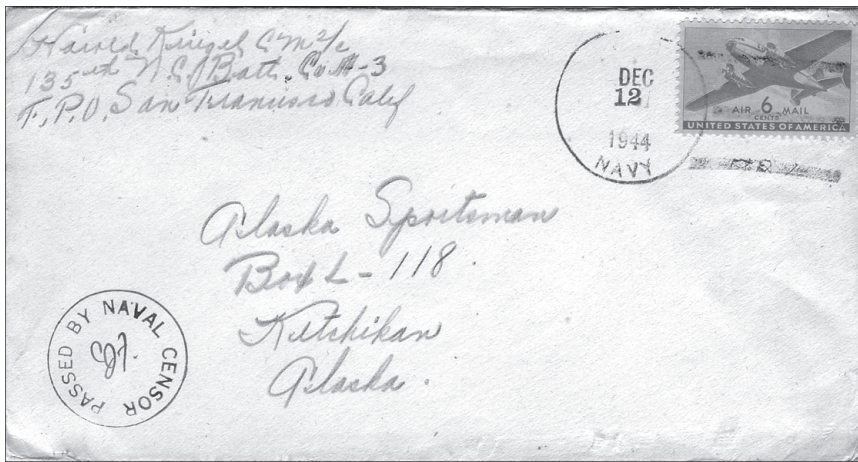 Harold Kriegel CM2/c
135th N.C. Batt. Co. A-3
F.P.O. San Francisco Calif
DEC
12
1944
NAVY
AIR 6 MAIL
CENTS
UNITED STATES OF AMERICA
Alaska Sportsman
Box L-118.
Ketchikan
Alaska.
PASSED BY NAVAL CENSOR